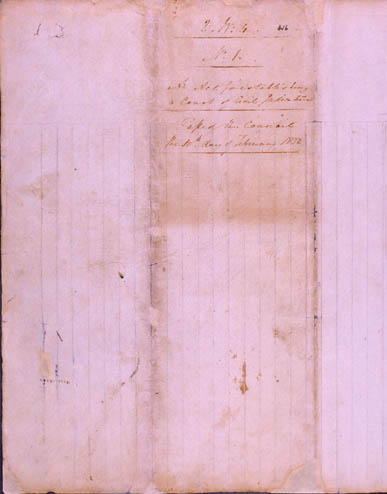 2. Wm. 4.
No. 1.
An Act for establishing
a Court of Civil Judicature
Passed the Council
the 10th day of February 1832